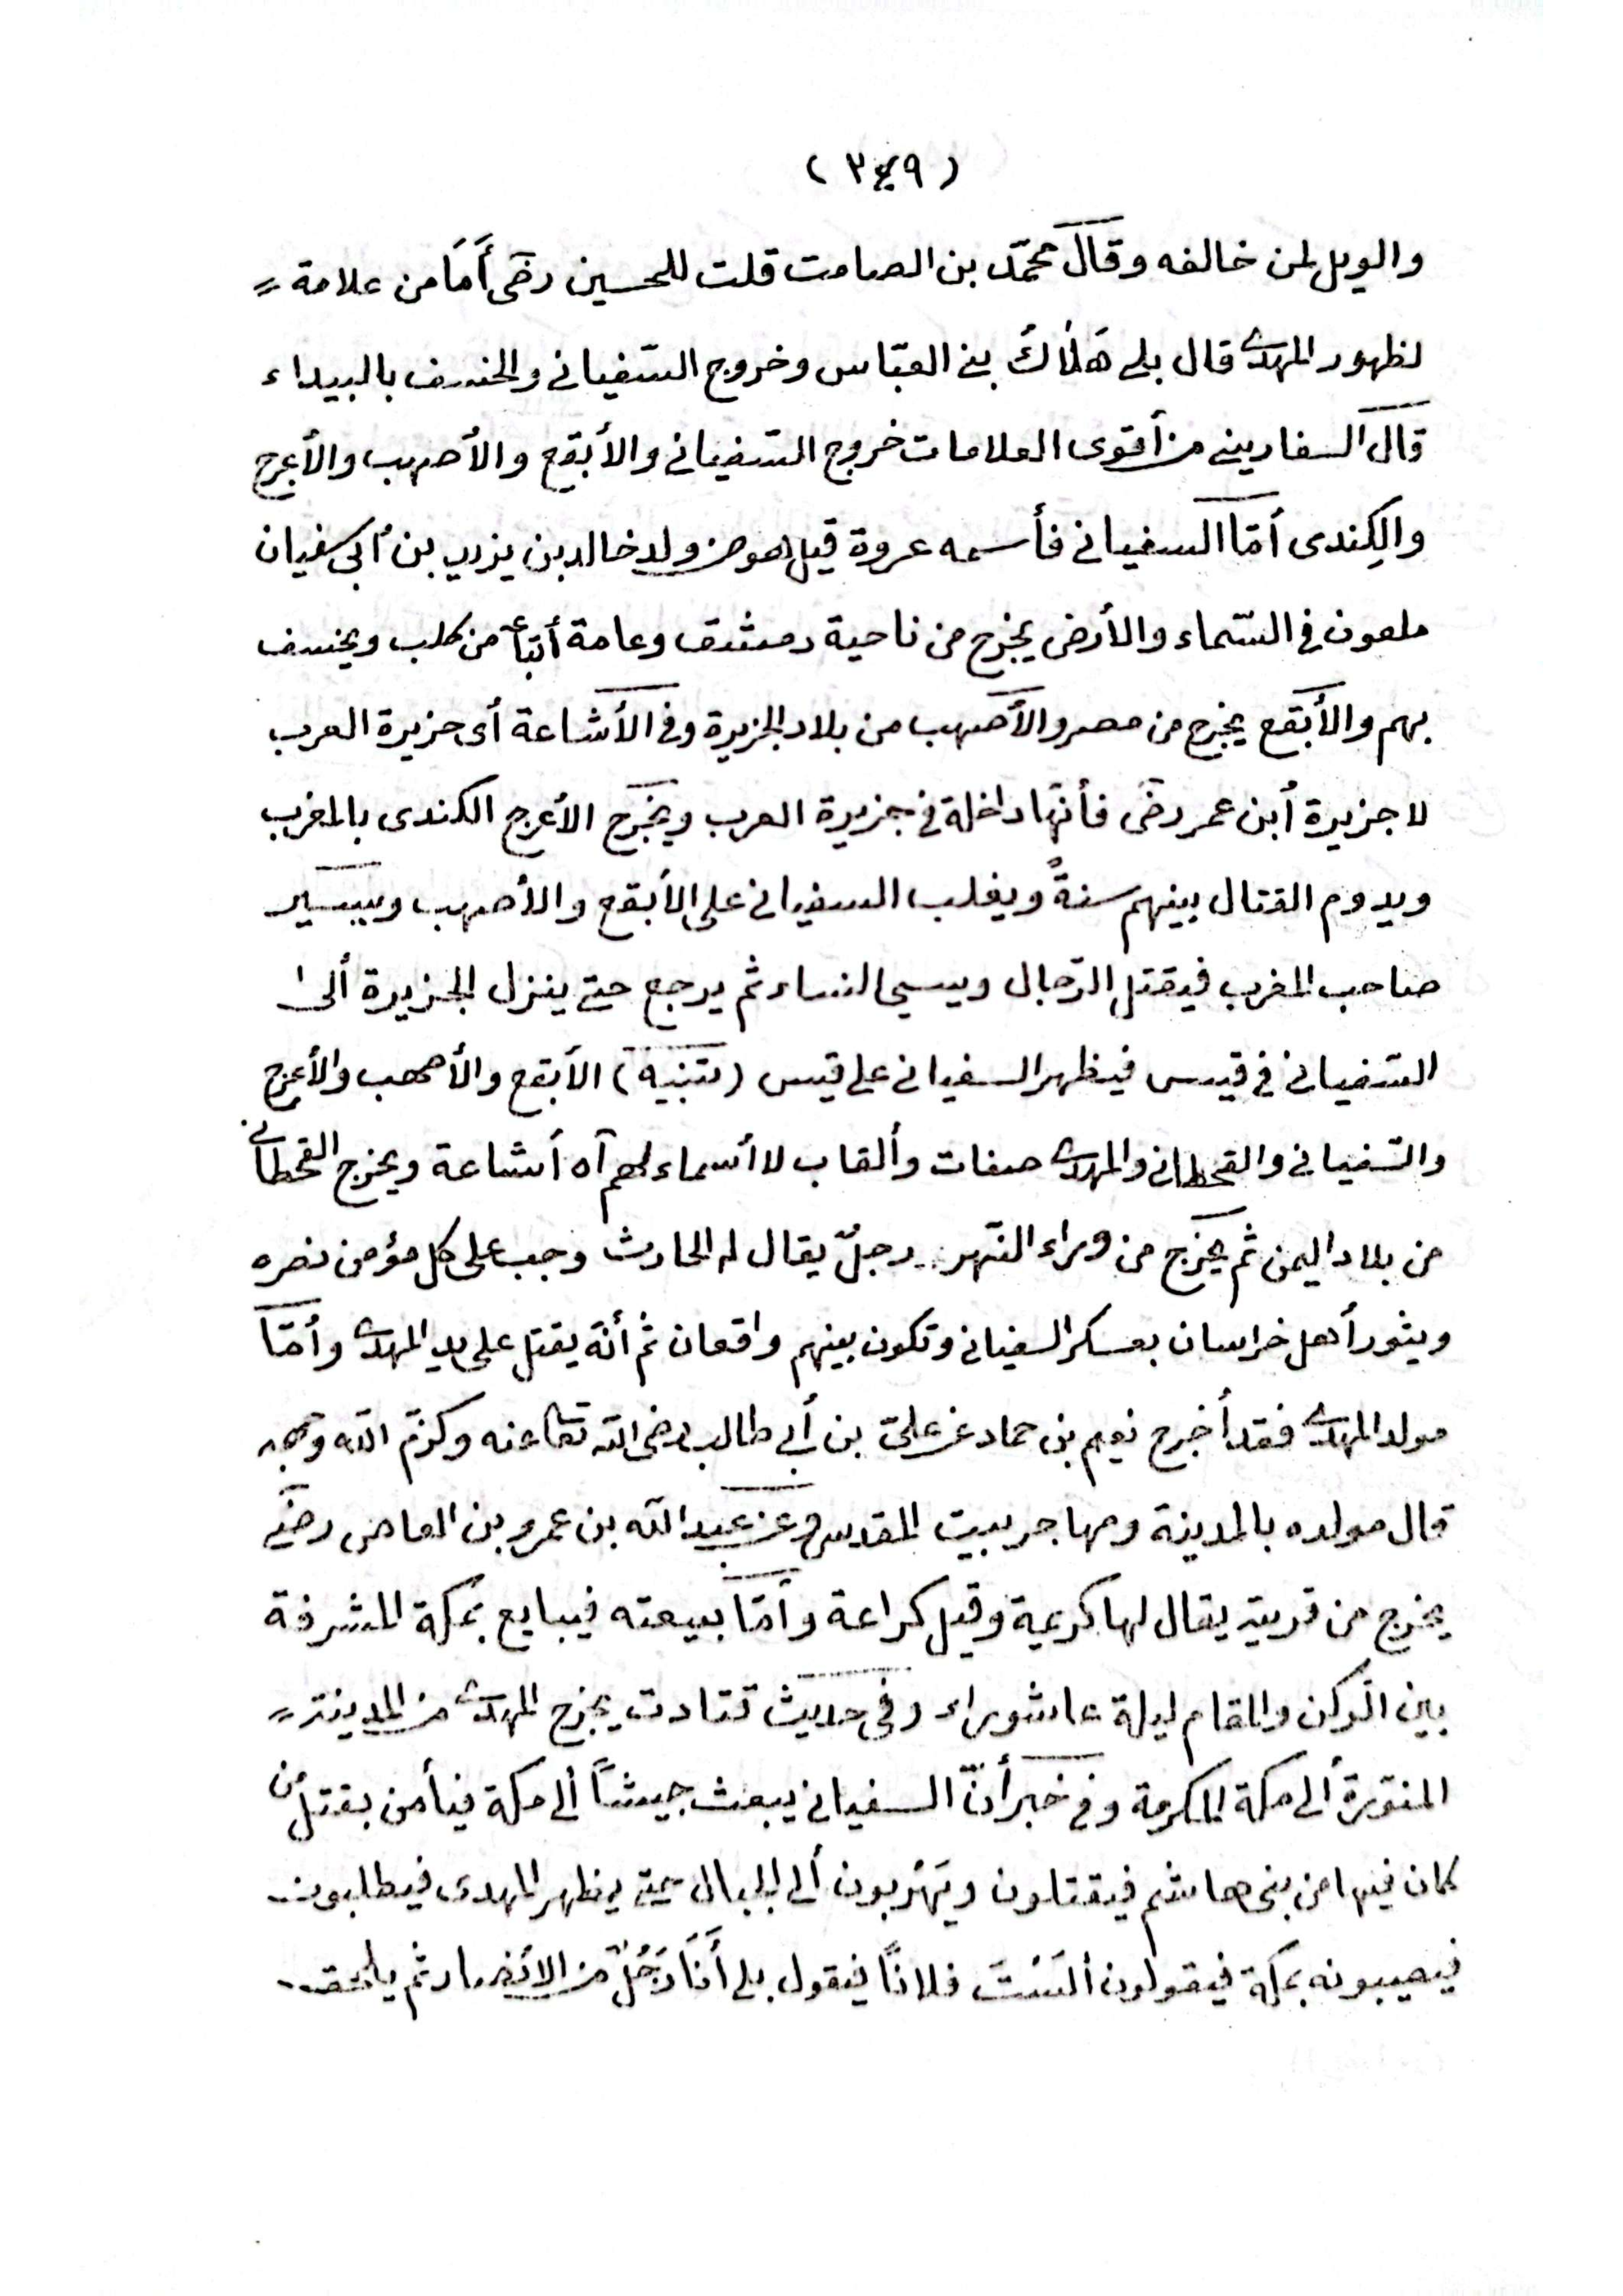 (٣٤٩)
والويل لمن خالفه وقال محمّد بن الصامت قلت للحسين رضى أَمَا من علامة
لظهور المهدى قال بلى هَلٰاكُ بنى العبّاس وخروج السّفيانى والخسف بالبيداء
قال السفارينى من أقوى العلامات خروج السّفيانى والأبقع والأصهب والأعرج
والكِندى أمّا السفيانى فأسمه عروة قيل هو من ولد خالد بن يزيد بن أبى سفيان
ملعون فى السّماء والأرض يخرج من ناحية دمشق وعامة أتباعه من كلب ويخسف
بهم والأبقع يخرج من مصر والأصهب من بلاد الجزيرة وفى الأشاعة أى جزيرة العرب
لا جزيرة أبن عمر رضى فأنّها داخلة فى جزيرة العرب ويخرج الأعرج الكندى بالمغرب
ويدوم القتال بينهم سنةً ويغلب السفيانى على الأبقع والأصهب ويسير
صاحب المغرب فيقتل الرّجال ويسبى النساء ثم يرجع حتى ينزل الجزيرة ألى
السّفيانى فى قيس فيظهر السفيانى على قيس (تنبيه) الأبقع والأصهب والأعرج
والسّفيانى والقحطانى والمهدى صفات وألقاب لا أسماء لهم آه أشاعة ويخرج القحطانى
من بلاد اليمن ثم يخرج من وراء النّهر رجلٌ يقال له الحارث وجب على كل مؤمن نصره
ويثور أهل خراسان بعسكر السفيانى وتكون بينهم واقعان ثم أنّه يقتل على يد المهدى وأمّا
مولد المهدى فقد أخرج نعيم بن حماد عن علىّ بن أبى طالب رضى الله تعالى عنه وكرّم الله وجهه
قال مولده بالمدينة ومهاجر ببيت المقدس وعن عبد الله بن عمرو بن العاص رضى
يخرج من قرية يقال لها كريمة وقيل كراعة وأمّا بيعته فيبايع بمكة المشرفة
بين الرّكن والمقام ليلة عاشوراء وفى حديث قتادت يخرج المهدى من المدينة
المنوّرة ألى مكة المكرمة وفى خبر أنّ السفيانى يبعث جيشاً ألى مكة فيأمن بقتل من
كان فيها من بنى هاشم فيقتلون ويَهْرَبون ألى الجبال حتى يظهر المهدى فيطلبون
فيصيبونه بمكة فيقولون ألَسْتَ فلانًا فيقول بلى أَنَا رَجُلٌ من الأنصار ثم يلحق